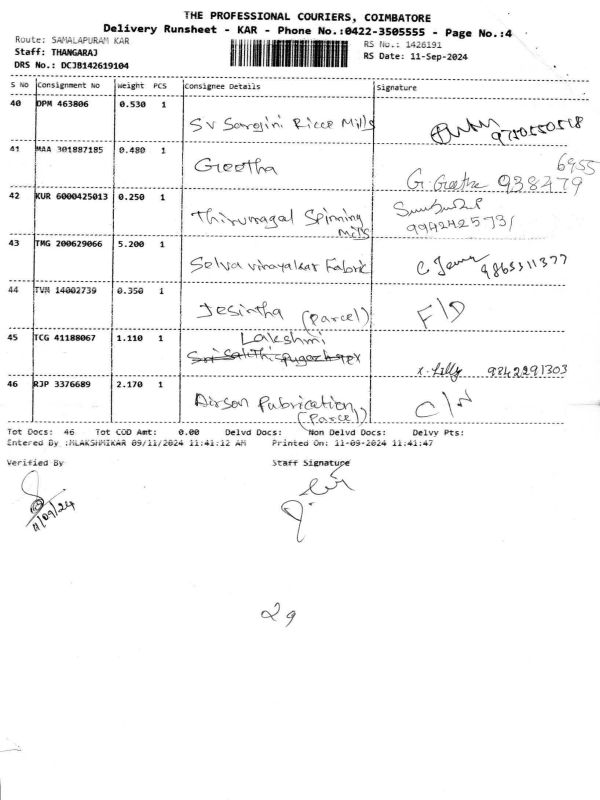 THE PROFESSIONAL COURIERS, COIMBATORE
Delivery Runsheet - KAR - Phone No.:0422-3505555 - Page No.:4
Route: SAMALAPURAM KAR
RS No.: 1426191
Staff: THANGARAJ
RS Date: 11-Sep-2024
DRS No.: DCJB142619104
S No Consignment No Weight PCS Consignee Details Signature
40 DPM 463806 0.530 1
SV Sarojini Ricce Mills
9750550518
41 MAA 301887185 0.480 1
Geetha
G. Geetha 938479
6955
42 KUR 6000425013 0.250 1
Thirumagal Spinning
Mills
9942425731
43 TMG 200629066 5.200 1
Selva vinayakar Fabric
9865311377
44 TVM 14002739 0.350 1
Jesintha (Parcel)
F/D
45 TCG 41188067 1.110 1
Lakshmi
x. Lilly 9342291303
46 RJP 3376689 2.170 1
Airson Fabrication
(Parcel)
C/N
Tot Docs: 46 Tot COD Amt: 0.00 Delvd Docs: Non Delvd Docs: Delvy Pts:
Entered By :MLAKSHMIKAR 09/11/2024 11:41:12 AM Printed On: 11-09-2024 11:41:47
Verified By Staff Signature
11/09/24
29